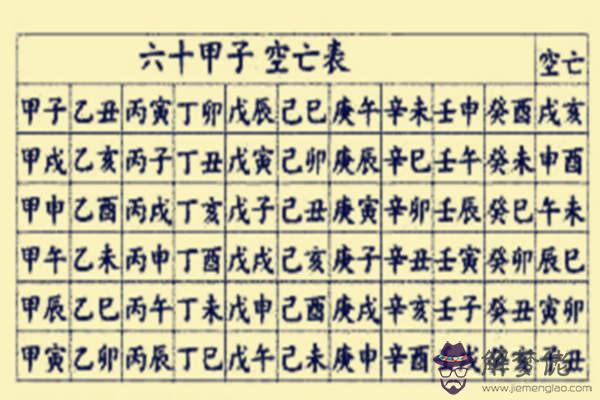 六十甲子 空亡表 空亡
甲子 乙丑 丙寅 丁卯 戊辰 己巳 庚午 辛未 壬申 癸酉 戌亥
甲戌 乙亥 丙子 丁丑 戊寅 己卯 庚辰 辛巳 壬午 癸未 申酉
甲申 乙酉 丙戌 丁亥 戊子 己丑 庚寅 辛卯 壬辰 癸巳 午未
甲午 乙未 丙申 丁酉 戊戌 己亥 庚子 辛丑 壬寅 癸卯 辰巳
甲辰 乙巳 丙午 丁未 戊申 己酉 庚戌 辛亥 壬子 癸丑 寅卯
甲寅 乙卯 丙辰 丁巳 戊午 己未 庚申 辛酉 戌 丑
解夢佬
www.jiemenglao.com